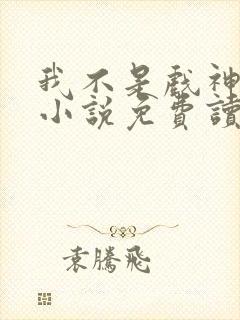 我不是戲神
小說免費讀
袁騰飛